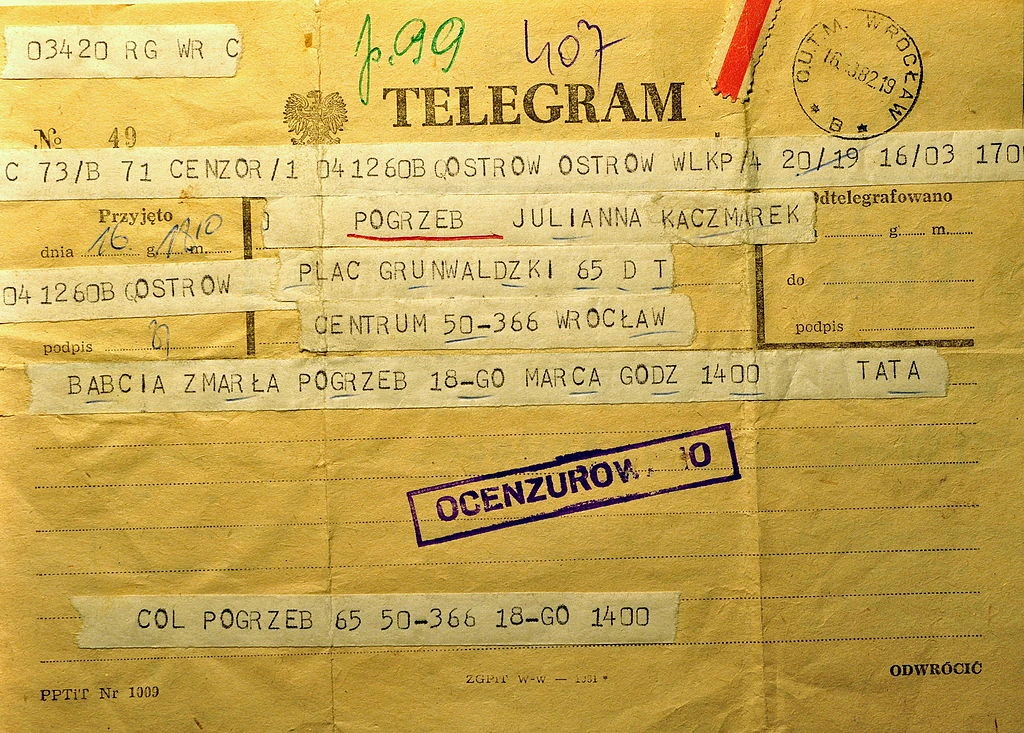 03420 RG WR C
p.99
407
TELEGRAM
O.U.T.M. WROCŁAW
82.19
* B *
No 49
C 73/B 71 CENZOR/1 041260B QOSTROW OSTROW WLKP/4 20/19 16/03 1700
Przyjęto
dtelegrafowano
POGRZEB JULIANNA KACZMAREK
dnia 16 g. m.
g. m.
PLAC GRUNWALDZKI 65 D T
do
041260B QOSTROW
CENTRUM 50-366 WROCŁAW
podpis
podpis
BABCIA ZMARŁA POGRZEB 18-GO MARCA GODZ 1400 TATA
OCENZUROW O
COL POGRZEB 65 50-366 18-GO 1400
ODWRÓCIĆ
ZGPiT W-w —
PPTiT Nr 1009